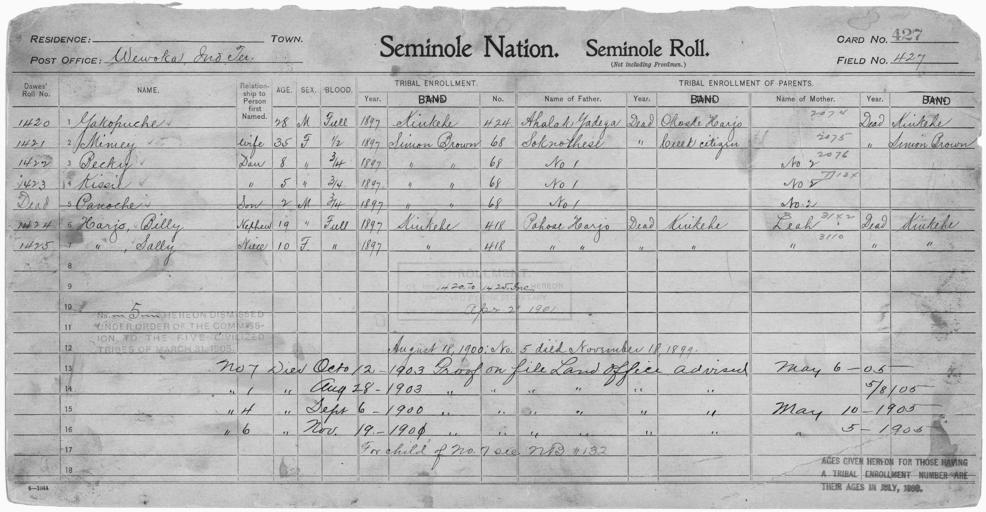 RESIDENCE: TOWN.
POST OFFICE: Wewoka, Ind. Ter.
Seminole Nation. Seminole Roll.
(Not including Freedmen.)
CARD NO. 427
FIELD NO. 427
Dawes' Roll No. NAME. Relationship to Person first Named. AGE. SEX. BLOOD. TRIBAL ENROLLMENT. TRIBAL ENROLLMENT OF PARENTS.
Year. BAND No. Name of Father. Year. BAND Name of Mother. Year. BAND
1420 1 Yakopuche 28 M Full 1897 Ninkehe 424 Ahalak Yadeya Dead Ohoske Harjo 2074 Dead Ninkehe
1421 2 Mimey wife 35 F 1/2 1897 Simon Brown 68 Soknothesi " Creek citizen 2075 " Simon Brown
1422 3 Becky Dau 8 " 3/4 1897 " " 68 No 1 No 2 2076
1423 4 Kissie " 5 " 3/4 1897 " " 68 No 1 No 2
Dead 5 Panoche Son 2 M 3/4 1897 " " 68 No 1 No. 2
1424 6 Harjo, Billy Nephew 19 " Full 1897 Ninkehe 418 Pahose Harjo Dead Ninkehe Leah Dead Ninkehe
1425 7 " , Sally Niece 10 F " 1897 " " 418 " " " " " 3110 " "
8
9 ENROLLMENT
1420 to 1425 Inc. HEREON
APPROVED BY THE SECRETARY
10 Apr 2 1901
No. 5 HEREON DISMISSED
11 UNDER ORDER OF THE COMMISSION TO THE FIVE CIVILIZED
12 TRIBES OF MARCH 31, 1905.
August 18, 1900: No. 5 died November 18, 1899.
13 No 7 Died Octo 12 - 1903 Proof on file Land Office advised May 6 - 05
14 " 1 " Aug 28 - 1903 " " " " " 5/8/05
15 " 4 " Sept 6 - 1900 " " " " " May 10 - 1905
16 " 6 " Nov. 19 - 1900 " " " " " " 5 - 1905
17 For child of No. 7 see NB # 132
18
6-3144
AGES GIVEN HEREON FOR THOSE HAVING
A TRIBAL ENROLLMENT NUMBER ARE
THEIR AGES IN JULY, 1898.